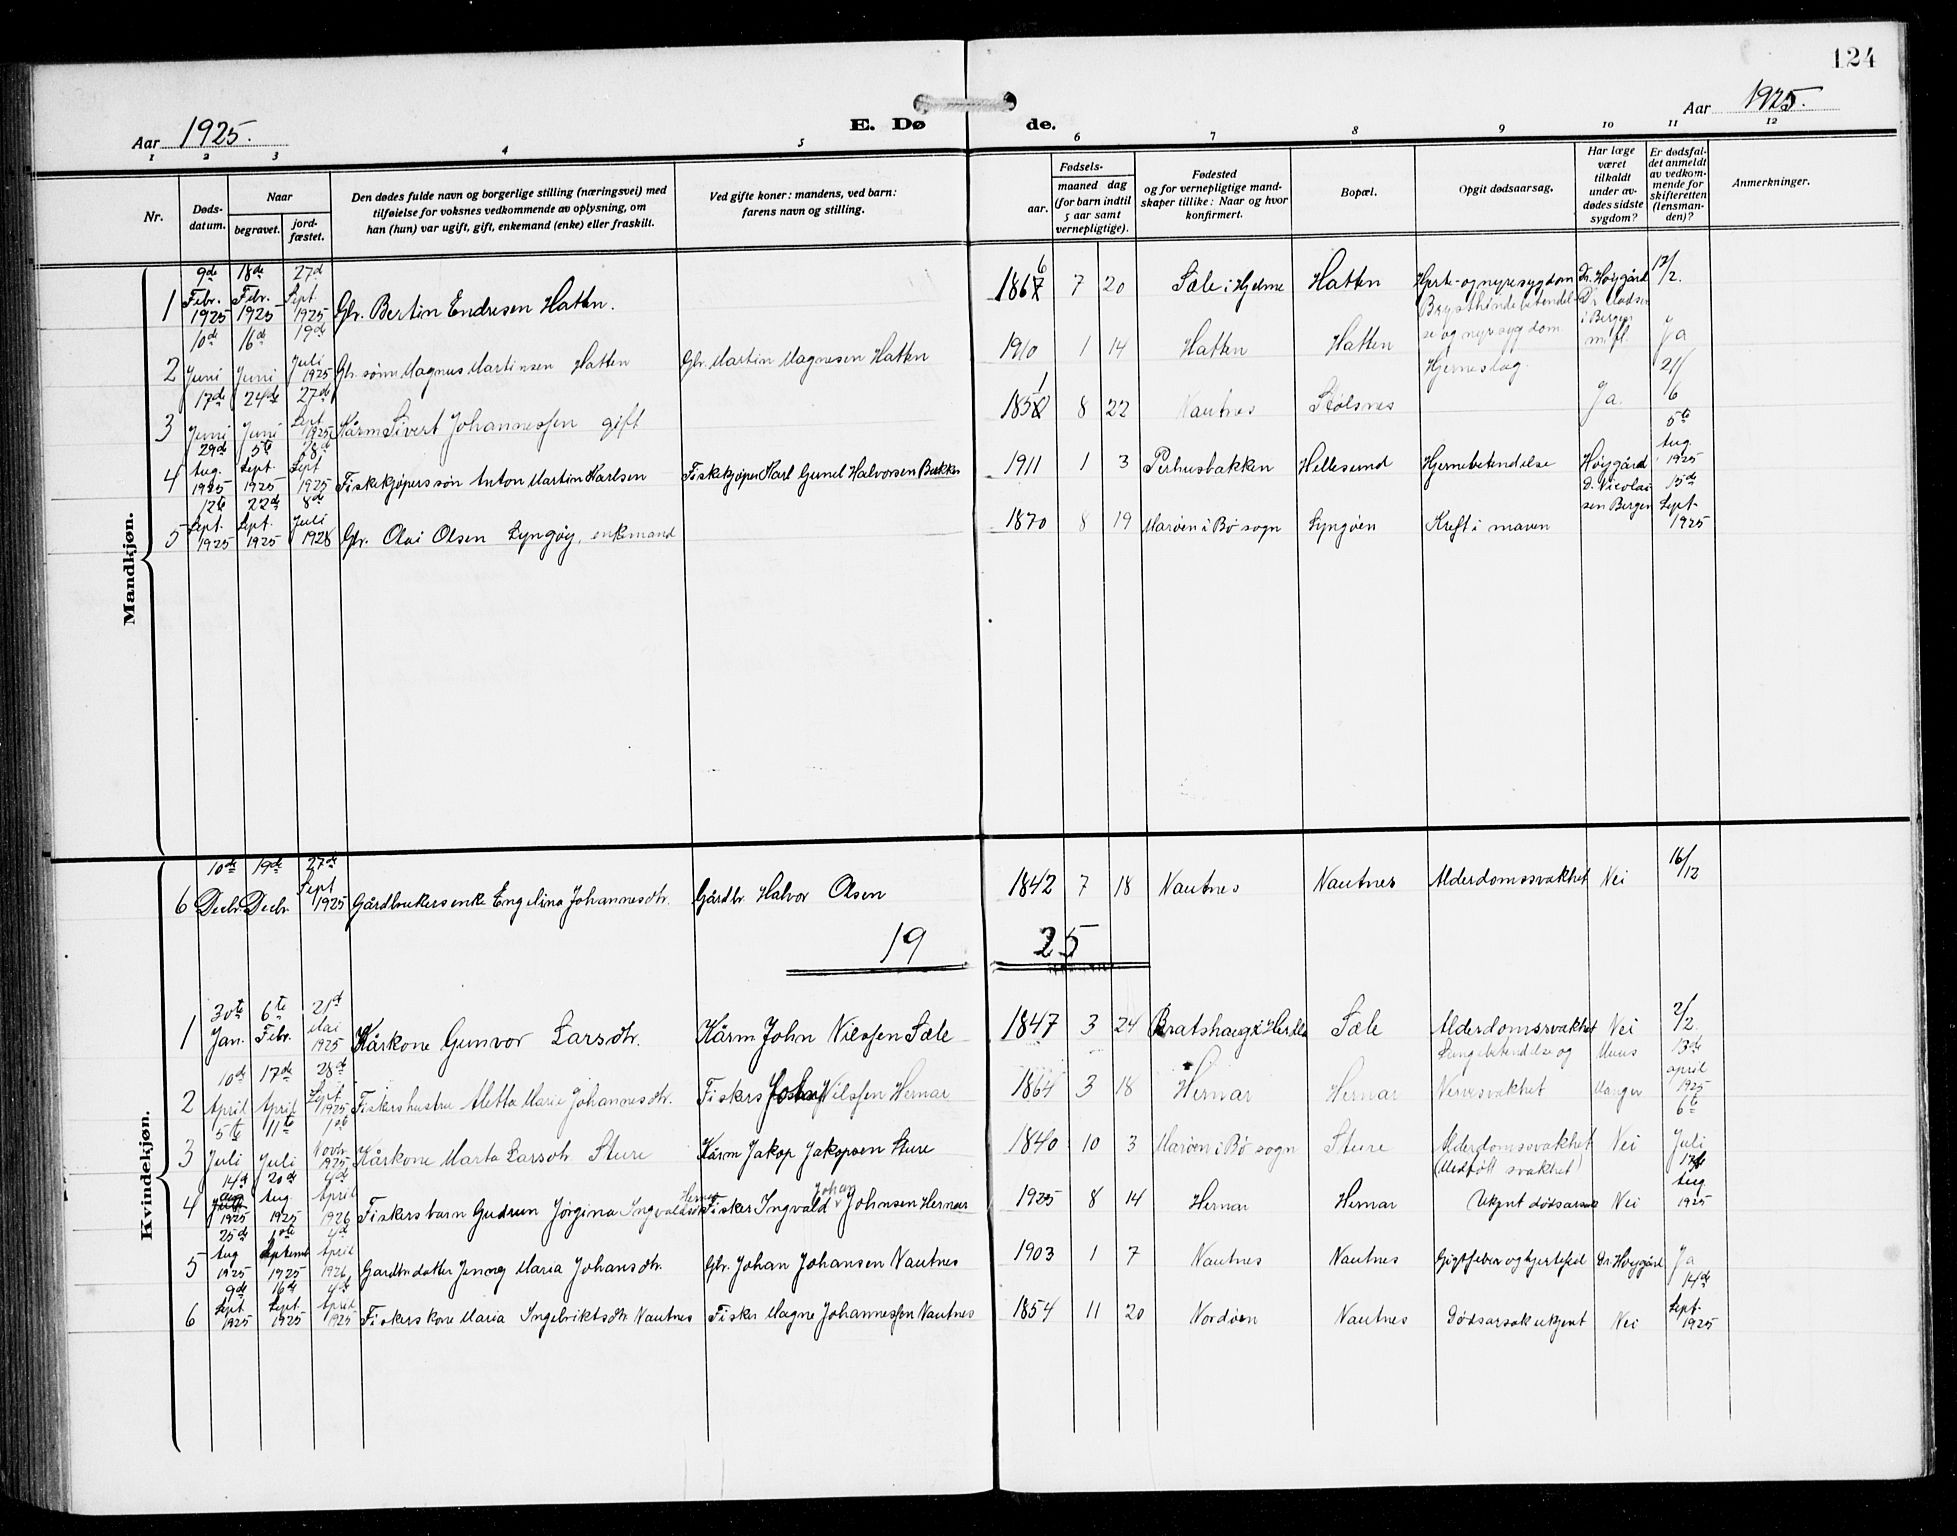 124
Aar 1925. E. Døde. Aar 1925.
1 2 3 4 5 6 7 8 9 10 11 12
Nr. | Døds-datum. | Naar begravet. | jord-fæstet. | Den dødes fulde navn og borgerlige stilling (næringsvei) med tilføielse for voksnes vedkommende av oplysning, om han (hun) var ugift, gift, enkemand (enke) eller fraskilt. | Ved gifte koner: mandens, ved barn: farens navn og stilling. | Fødsels- aar. | maaned dag (for barn indtil 5 aar samt vernepligtige). | Fødested og for vernepligtige mandskaper tillike: Naar og hvor konfirmert. | Bopæl. | Opgit dødsaarsag. | Har læge været tilkaldt under avdødes sidste sygdom? | Er dødsfaldet anmeldt av vedkommende for skifteretten (lensmanden)? | Anmerkninger.
Mandkjøn.
1 | 9de Febr. 1925 | 18de Febr. 1925 | 27d Sept. 1925 | Gbr. Bertin Endresen Hatten. | | 1866 | 7 | 20 | Sæle i Hjelme | Hatten | Hjerte- og nyresygdom | Dr. Høygård | 12/2.
2 | 10de Juni | 16de Juni | 19de Juli 1925 | Gbr. sønn Magnus Martinsen Hatten | Gbr. Martin Magnesen Hatten | 1910 | 1 | 14 | Hatten | Hatten | Brysthindebetendelse og nyresygdom | i Bergen m. fl. | Ja
3 | 17de Juni | 24de Juni | 27de Sept. 1925 | Kårm Sivert Johannessen gift | | 1851 | 8 | 22 | Nautnes | Stølsnes | Hjerneslag. | Ja. | 21/6
4 | 29de Aug. 1925 | 5te Sept. 1925 | 28de Sept 1925 | Fiskekjøperssøn Anton Martin Karlsen | Fiskekjøper Karl Gunel Halvorsen Bakken | 1911 | 1 | 3 | Perhusbakken | Hellesund | Hjernebetendelse | Høygård | 5te Aug. 1925
5 | 12te Sept. 1925 | 22de Sept. 1925 | 8de Juli 1928 | Gbr. Olai Olsen Lyngøy, enkemand | | 1870 | 8 | 19 | Marøen i Bø sogn | Lyngøen | Kreft i maven | D. Nicolaisen Bergen | 15de Sept. 1925
6 | 10de Decbr. | 19de Decbr. | 27de Sept 1925 | Gårdbrukersenke Engelina Johannesdtr. | Gårdbr. Halvor Olsen | 1842 | 7 | 18 | Nautnes | Nautnes | Alderdomssvakhet | Nei | 16/12
1925
Kvindekjøn.
1 | 30te Jan. | 6te Febr. | 21d Mai 1925 | Kårkone Gunvor Larsdtr. | Kårm John Nilssen Sæle | 1847 | 3 | 24 | Bratshaug i Herdla | Sæle | Alderdomssvakhet | Nei | 2/2.
2 | 10de April | 17de April | 28de Sept. 1925 | Fiskershustru Aletta Marie Johannesdtr. | Fiskers Nilssen Hernar | 1864 | 3 | 18 | Hernar | Hernar | Lungebetendelse og Nervesvakhet | Muus Manger | 13de april 1925
3 | 5te Juli | 11te Juli | 1ste Novbr 1925 | Kårkone Marta Larsdtr Sture | Kårm Jakop Jakopsen Sture | 1840 | 10 | 3 | Marøen i Bø sogn | Sture | Alderdomssvakhet | Nei | 6te Juli
4 | 14d aug 1925 | 20de Aug. 1925 | 4de April 1926 | Fiskersbarn Gudrun Jørgina Ingvaldsdtr Hernar | Fisker Ingvald Johan Johnsen Hernar | 1925 | 8 | 14 | Hernar | Hernar | (Medfött svakhet) Ukjent dödsarsak | Nei | 17de Aug. 1925
5 | 25de Aug 1925 | 1ste Septemb 1925 | 4de April 1926 | Gardbr.datter Jenny Maria Johansdtr. | Gbr. Johan Johansen Nautnes | 1903 | 1 | 7 | Nautnes | Nautnes | Gigtfeber og hjertefeil | Dr. Høygård | Ja
6 | 9de Sept. 1925 | 16de Sept. 1925 | 4de April 1925 | Fiskerskone Maria Ingebriktsdtr Nautnes | Fisker Magne Johannessen Nautnes | 1854 | 11 | 20 | Nordöen | Nautnes | Dödsarsak ukjent | Nei | 14de Sept. 1925